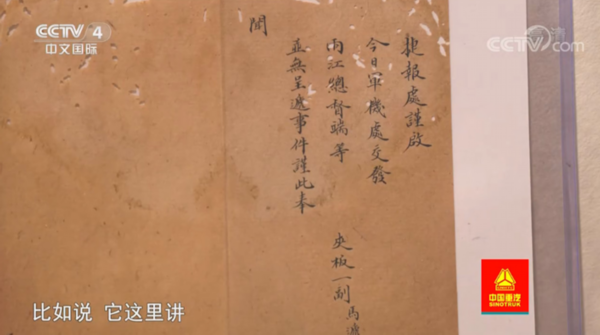 CCTV 4
中文国际
CCTV.com
捷報處謹啟
今日軍機處交發
兩江總督端等 夾板一副馬
並無呈遞事件謹此奉
聞
中国重汽
SINOTRUK
比如说 它这里讲